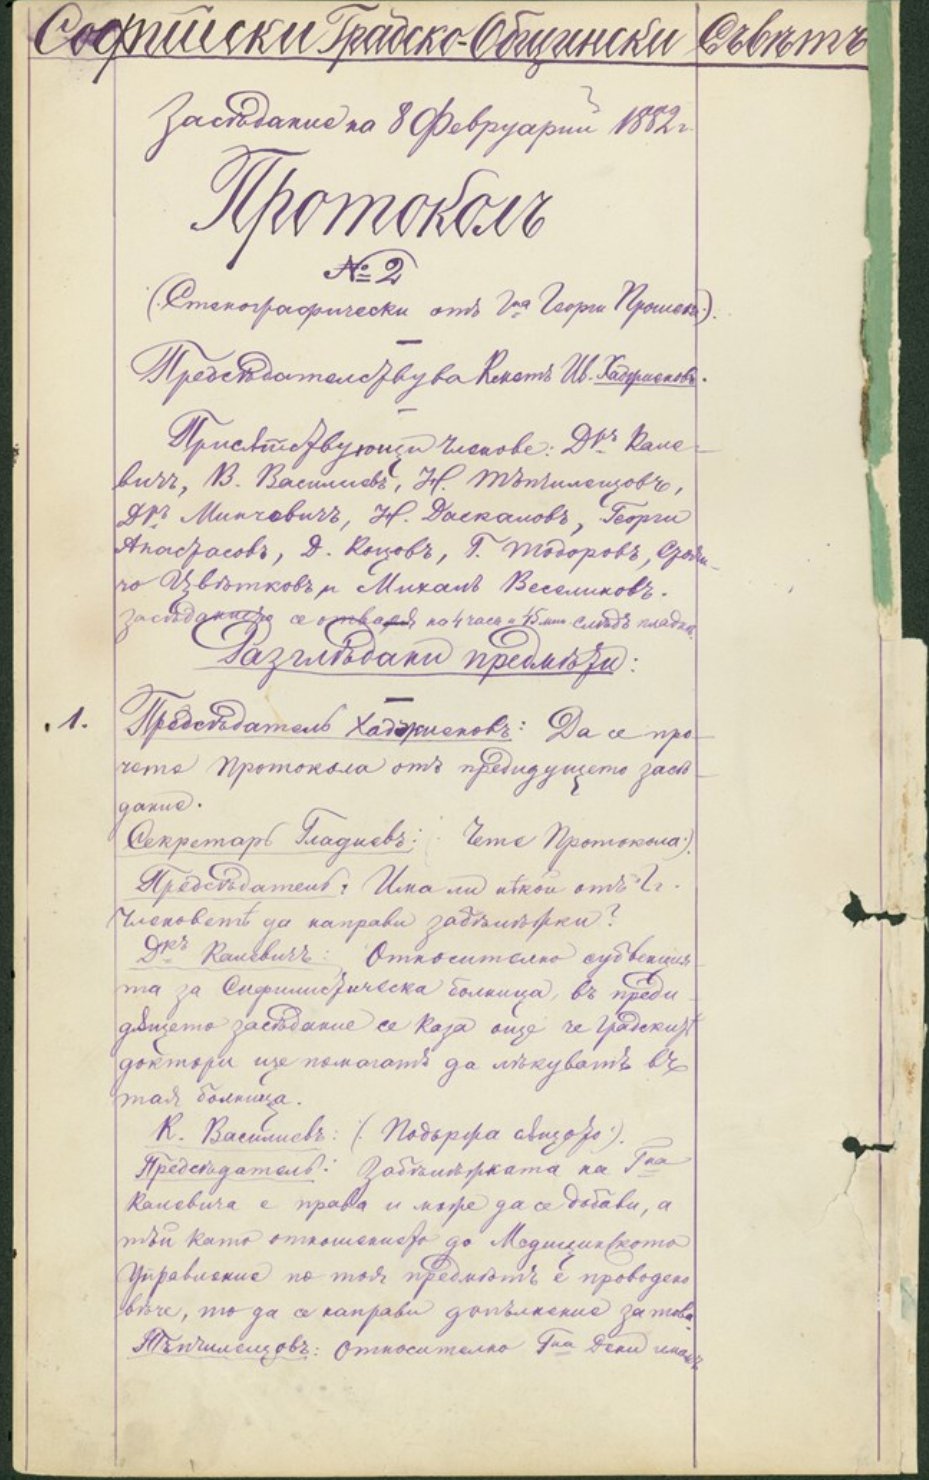 Софийски Градско-Общински Съвѣтъ
Засѣдание на 8 Февруарий 1882 г
Протоколъ
№ 2
(Стенографически отъ Гна Георги Прошекъ).
Председателствува Кметъ Ив. Хаджиеновъ.
Присѫтствующи Членове: Дръ Кале-
вичъ, В. Василиевъ, Н. Тъпчилещовъ,
Дръ Минчевичъ, Н. Даскаловъ, Георги
Анастасовъ, Д. Коцовъ, Г. Тодоровъ,
чо Цвѣтковъ и Михаль Веселиновъ.
засѣданието се отваря на 4 часа и 45 мин слѣдъ пладнѣ.
Разглѣдани предмѣти:
1. Прѣдсѣдатель Хаджиеновъ: Да се про-
чете Протокола отъ предидущето засѣ-
дание.
Секретарь Гладиевъ: (Чете Протокола).
Прѣдсѣдатель: Има ли нѣкои отъ Гг.
Членоветѣ да направи забѣлѣжки?
Дръ Калевичъ: Относително субвенция-
та за Сифилистическа болница, въ преди-
дѫщето засѣдание се каза още че Градскитѣ
доктори ще помагатъ да лѣкуватъ въ
тая болница.
К. Василиевъ: (Подържа сѫщото).
Прѣдсѣдатель: Забѣлѣжката на Гна
Калевича е права и може да се добави, а
тъй като отношението до Медицинското
Управление по тоя предмѣтъ е проводено
вѣче, то да се направи допълнение за това.
Тъпчилещовъ: Относително Гна Деки